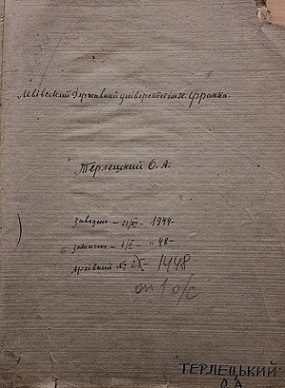 Львівський Державний університет ім. Франка.
Терлецкий О. А.
заведено – 1944
закінчено – 1/X – 48 –
архівний № IX – 1448
оп 1 о/с
ТЕРЛЕЦЬКИЙ
О. А.